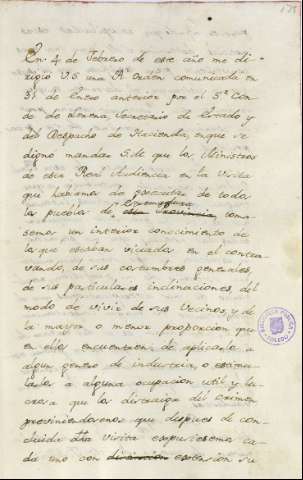 En 4 de Febrero de este año me di-
rigio V.S una Rl Orden comunicada en
31 de Enero anterior por el Sor Con-
de de Lerena, Secretario de Estado y
del Despacho de Hacienda, en que se
digno mandar S.M que los Ministros
de esta Real Audiencia en la Visita
que habiamos de executar de todos
los pueblos de Extremadura esta Provincia, toma-
semos un interior conocimiento de
los que estaban viciados en el contra-
vando, de sus costumbres generales,
de sus particulares inclinaciones, del
modo de vivir de sus Vecinos, y de
la mayor o menor proporcion que
en ellos encuentren, de aplicarlos a
algun genero de industria, o estimu-
larlos a alguna ocupacion util, y lu-
crosa que los distraiga del crimen
previniendosenos que despues de con-
cluida dha visita expusiesemos ca-
da uno con extension su